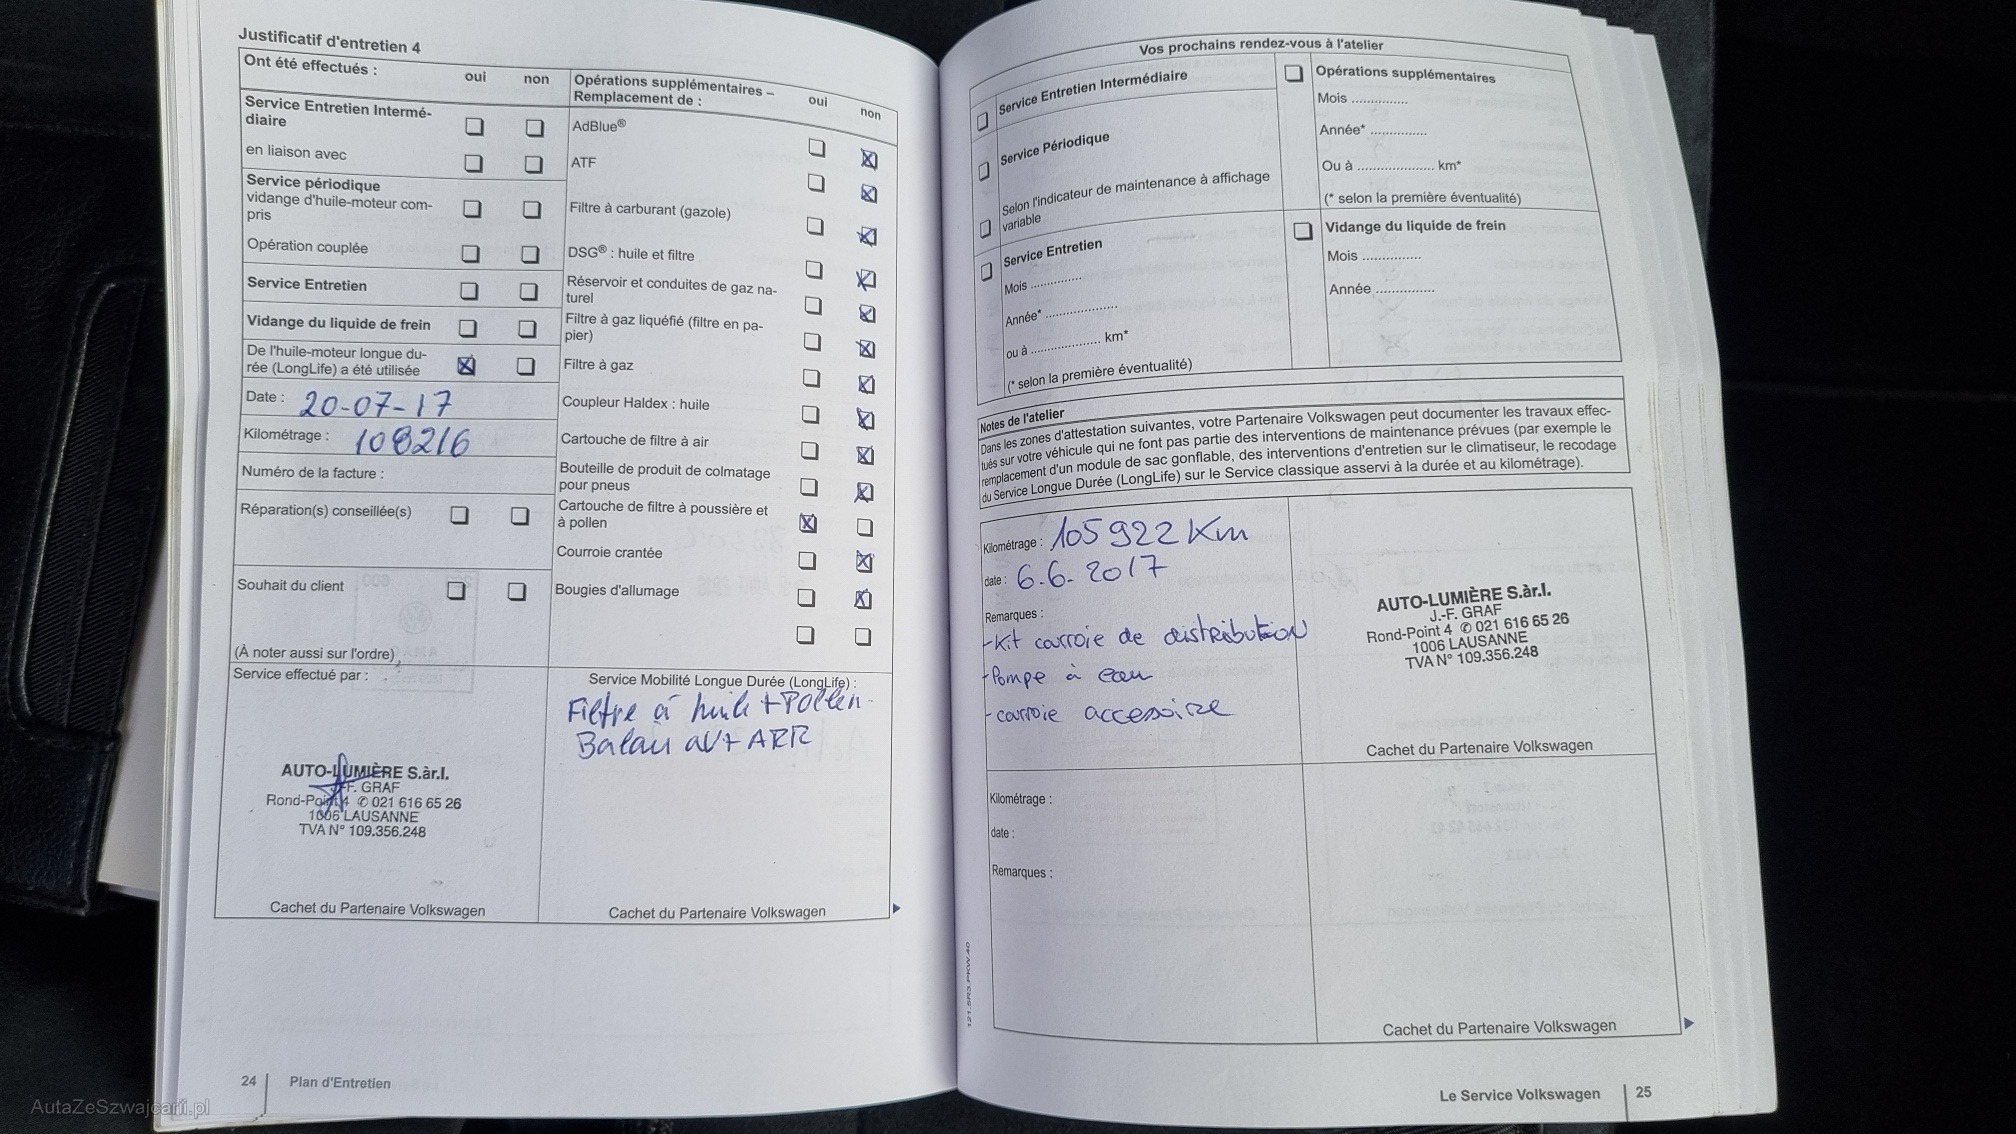 Justificatif d'entretien 4
Ont été effectués :
oui
non
Service Entretien Intermé-
diaire
en liaison avec
Service périodique
vidange d'huile-moteur com-
pris
Opération couplée
Service Entretien
Vidange du liquide de frein
De l'huile-moteur longue du-
rée (LongLife) a été utilisée
Date : 20-07-17
Kilométrage : 108216
Numéro de la facture :
Réparation(s) conseillée(s)
Souhait du client
(À noter aussi sur l'ordre)
Opérations supplémentaires –
Remplacement de :
oui
non
AdBlue®
ATF
Filtre à carburant (gazole)
DSG® : huile et filtre
Réservoir et conduites de gaz na-
turel
Filtre à gaz liquéfié (filtre en pa-
pier)
Filtre à gaz
Coupleur Haldex : huile
Cartouche de filtre à air
Bouteille de produit de colmatage
pour pneus
Cartouche de filtre à poussière et
à pollen
Courroie crantée
Bougies d'allumage
Service effectué par :
AUTO-LUMIÈRE S.àr.l.
J.-F. GRAF
Rond-Point 4 ✆ 021 616 65 26
1006 LAUSANNE
TVA N° 109.356.248
Cachet du Partenaire Volkswagen
Service Mobilité Longue Durée (LongLife) :
Filtre à huile + Pollen-
Balau avt ARR
Cachet du Partenaire Volkswagen
24
Plan d'Entretien
Vos prochains rendez-vous à l'atelier
Service Entretien Intermédiaire
Service Périodique
Selon l'indicateur de maintenance à affichage
variable
Service Entretien
Mois ...............
Année* .....................
ou à .................... km*
(* selon la première éventualité)
Opérations supplémentaires
Mois ...............
Année* ...............
Ou à .................... km*
(* selon la première éventualité)
Vidange du liquide de frein
Mois ...............
Année ...............
Notes de l'atelier
Dans les zones d'attestation suivantes, votre Partenaire Volkswagen peut documenter les travaux effec-
tués sur votre véhicule qui ne font pas partie des interventions de maintenance prévues (par exemple le
remplacement d'un module de sac gonflable, des interventions d'entretien sur le climatiseur, le recodage
du Service Longue Durée (LongLife) sur le Service classique asservi à la durée et au kilométrage).
Kilométrage : 105 922 Km
date : 6.6.2017
Remarques :
- Kit courroie de distribution
- Pompe à eau
- courroie accesoire
AUTO-LUMIÈRE S.àr.l.
J.-F. GRAF
Rond-Point 4 ✆ 021 616 65 26
1006 LAUSANNE
TVA N° 109.356.248
Cachet du Partenaire Volkswagen
Kilométrage :
date :
Remarques :
Cachet du Partenaire Volkswagen
121.5R3.PKW.40
Le Service Volkswagen
25
AutaZeSzwajcarii.pl